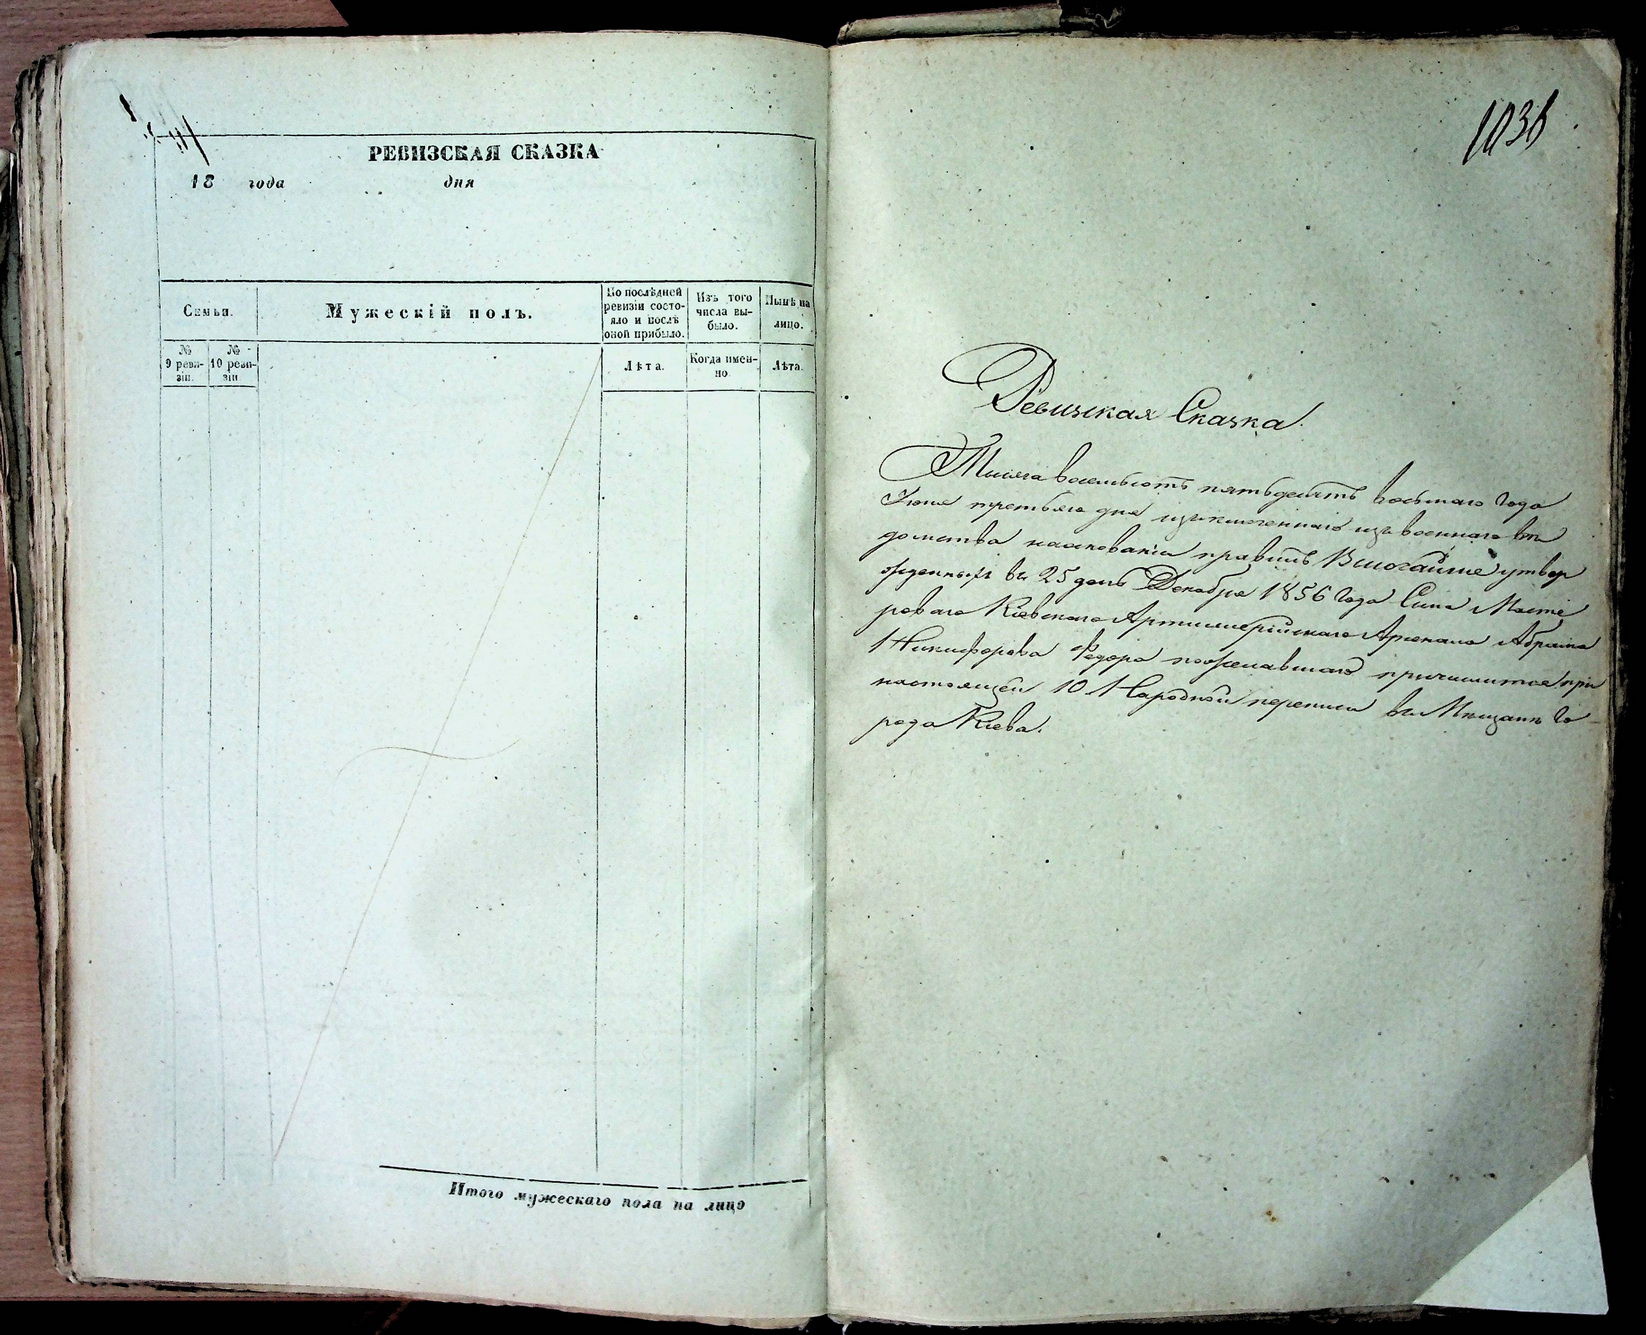 РЕВИЗСКАЯ СКАЗКА
18 года дня
Семьи.
Мужескій полъ.
По послѣдней
ревизіи состо-
яло и послѣ
оной прибыло.
Изъ того
числа вы-
было.
Нынѣ на
лицо.
№
9 реви-
зіи.
№
10 реви-
зіи
Лѣта.
Когда имен-
но
Лѣта.
Итого мужескаго пола на лицо
103
Ревизская Сказка
Тысяча восемьсотъ пятьдесятъ восьмаго года
Іюня третьяго дня изключеннаго изъ военнаго вѣ
домства наосновании правилъ Высочайше утвер
жденныхъ въ 25 день Декабря 1856 года Сына Масте
роваго Кіевскаго Артиллерійскаго Арсенала Абрама
Никифорова Федора пожелавшаго причислится при
настоящей 10 Народной переписи въ Мѣщане Го
рода Кіева.